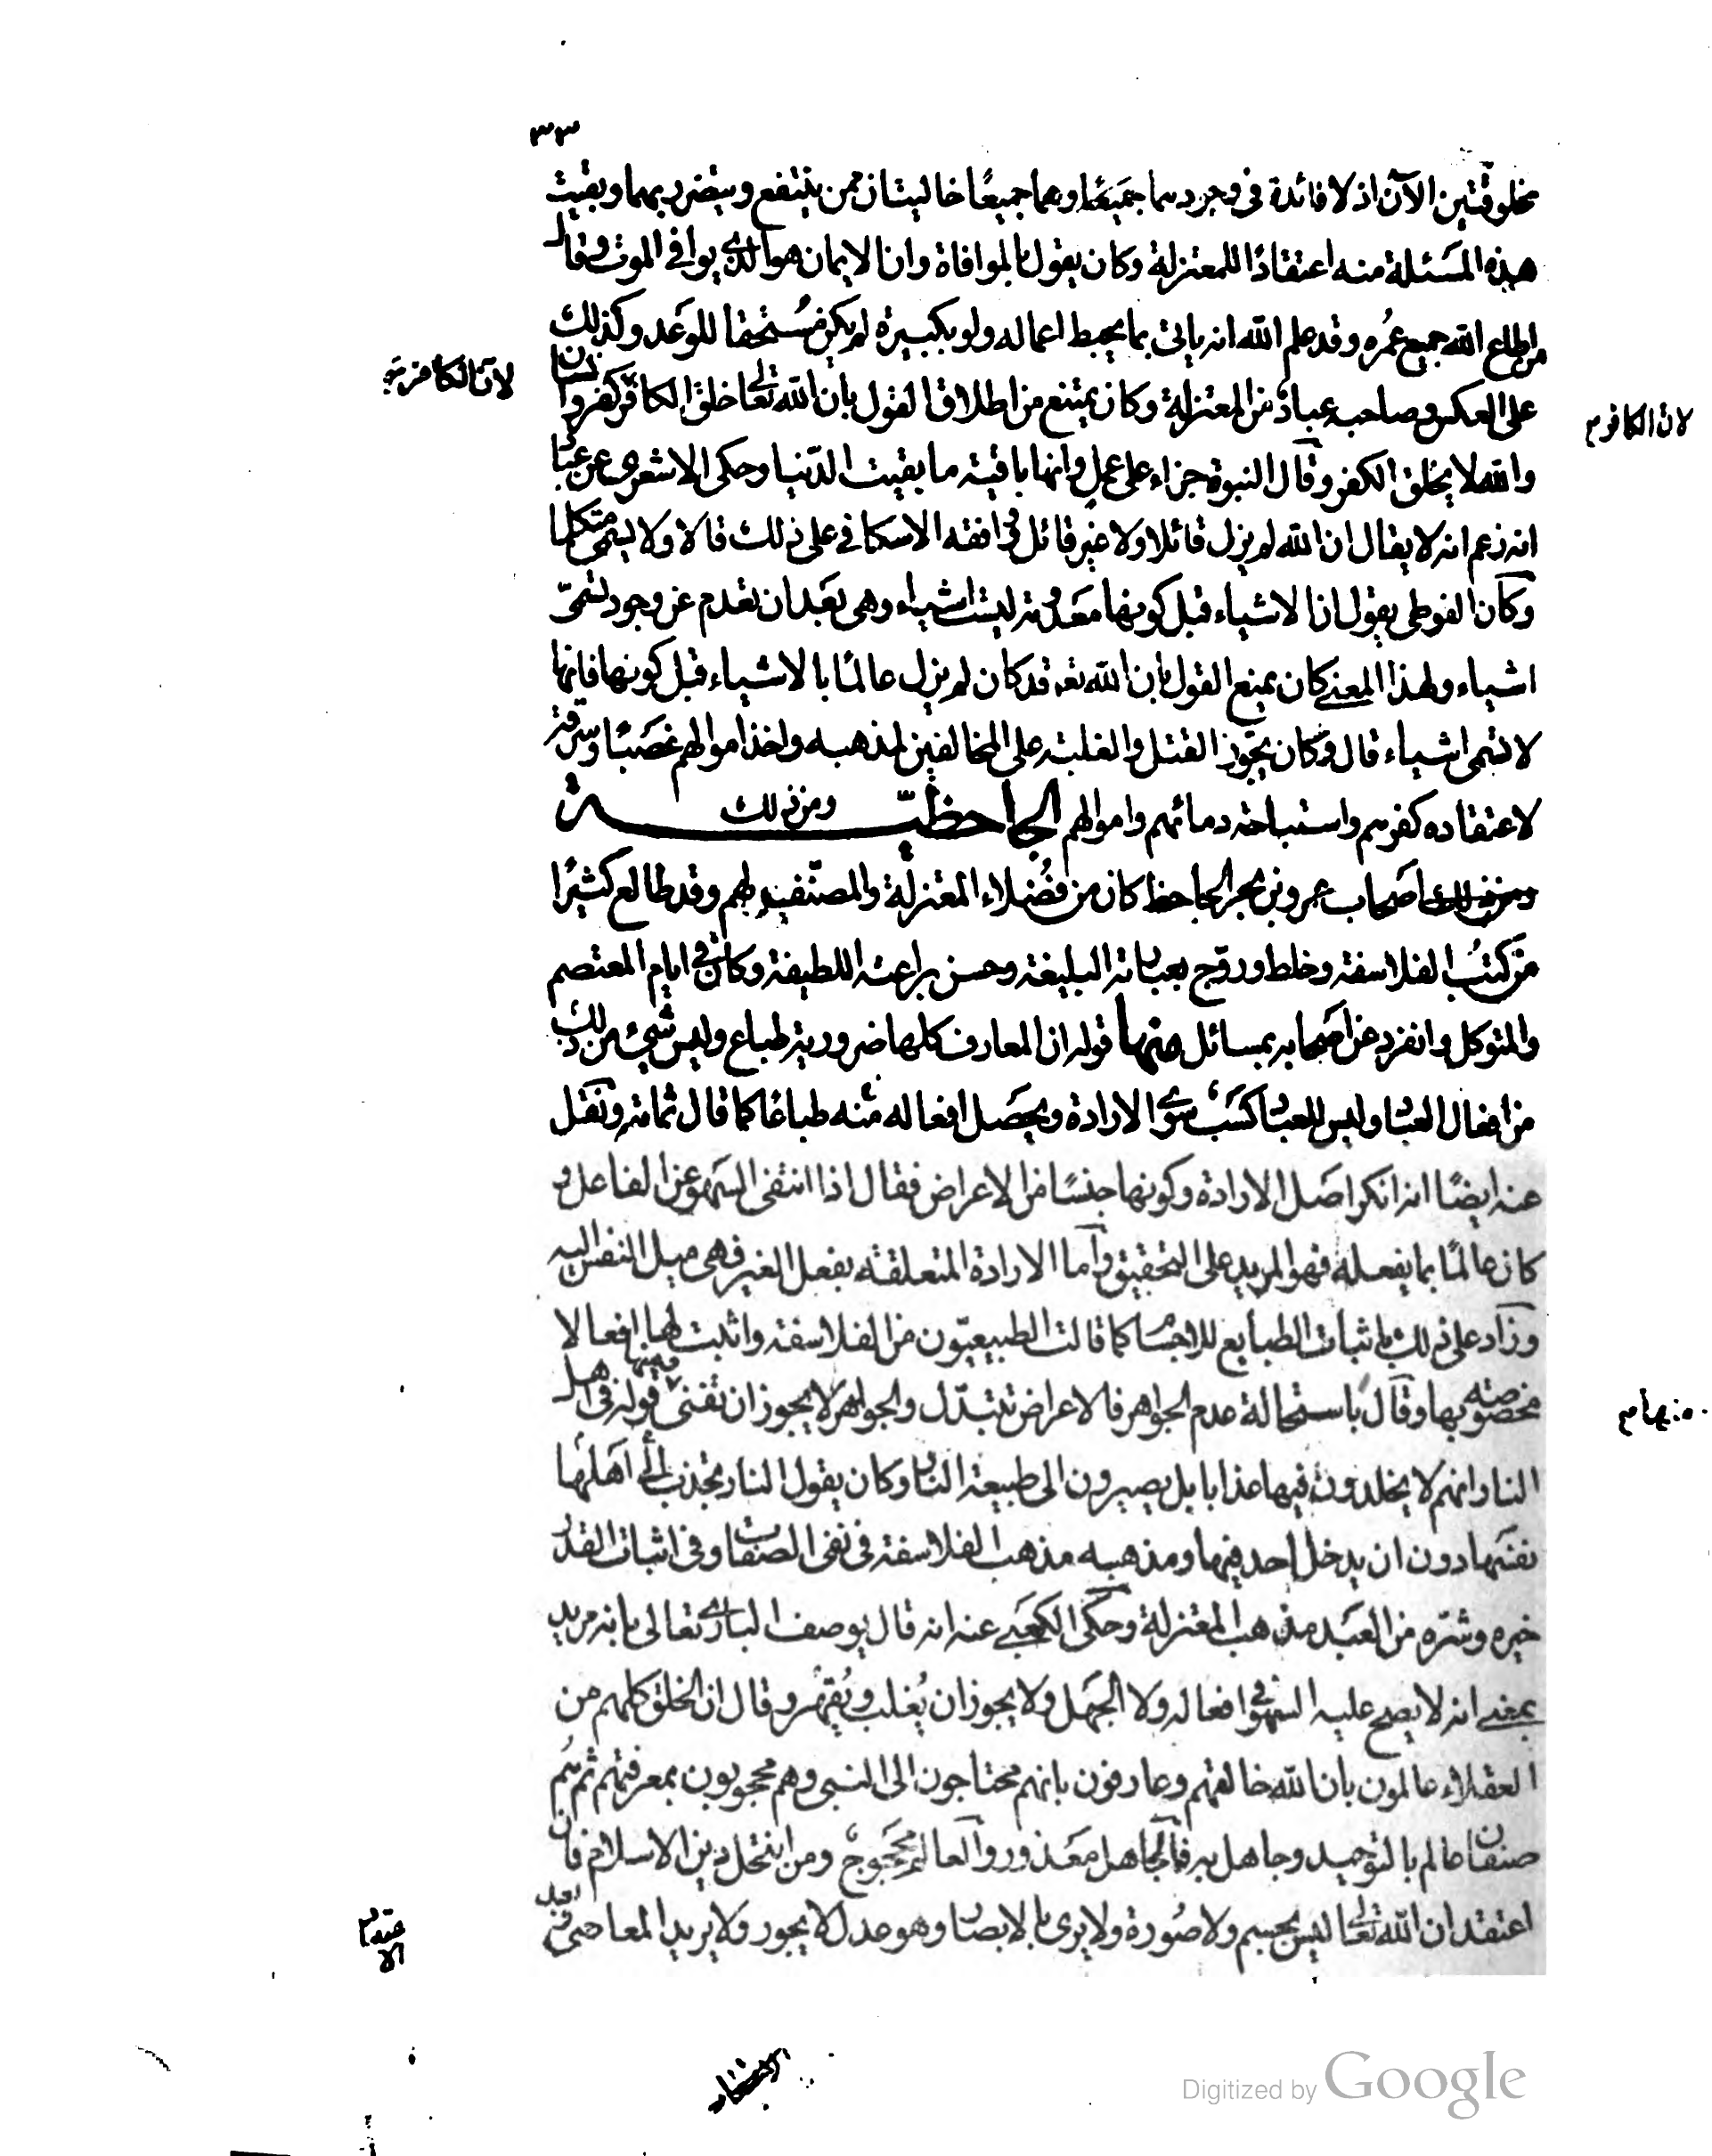 ٣٣
مخلوقتين الآن اذ لا فائدة فى وجودهما جميعًا وهما جميعًا خاليتان ممن ينتفع ويتضرر بهما وبقيت
هذه المسئلة منه اعتقادًا للمعتزلة وكان يقول بالموافاة وان الايمان هو الذي يوافي الموت وقال
من اطاع الله جميع عمره وقد علم الله انه ياتى بما يحبط اعماله ولو بكبيرة لم يكن مستحقا للوعد وكذلك
على العكس وصاحبه عباد من المعتزلة وكان يمتنع من اطلاق القول بان الله تعالى خلق الكافر كفر وانسان
لان الكافر
لان الكافر م
والله لا يخلق الكفر وقال النبوة جزاء على عمل وانها باقية ما بقيت الدنيا وحكى الاشعرى عن عباد
انه زعم انه لا يقال ان الله لم يزل قائلا ولا غير قائل وافقه الاسكافي على ذلك قالا ولا يسمى متكلما
وكان الفوطى يقول ان الاشياء قبل كونها معدومة ليست اشياء وهى بعد ان تعدم عن وجود تسمى
اشياء ولهذا المعنى كان يمنع القول بان الله تعه قد كان لم يزل عالمًا بالاشياء قبل كونها فانها
لا تسمى اشياء قال وكان يجوز القتل والغلبة على المخالفين لمذهبه واخذ اموالهم غصبًا وسرقة
لاعتقاده كفرهم واستباحة دمائهم واموالهم الجاحظيّة ومن ذلك
ومن ذلك اصحاب عمرو بن بحر الجاحظ كان من فضلاء المعتزلة والمصنفين لهم وقد طالع كثيرًا
من كتب الفلاسفة وخلط وروّج بعباراته البليغة وحسن براعته اللطيفة وكان في ايام المعتصم
والمتوكل وانفرد عن اصحابه بمسائل منها قوله ان المعارف كلها ضرورية طباع وليس شيء من ذلك
من افعال العباد وليس للعباد كسب سوى الارادة ويحصل افعاله منه طباعًا كما قال ثمامة ونقل
عنه ايضًا انه انكر اصل الارادة وكونها جنسًا من الاعراض فقال اذا انتفى السهو عن الفاعل و
كان عالمًا بما يفعله فهو المريد على التحقيق وأما الارادة المتعلقة بفعل الغير فهى ميل النفس اليه
وزاد على ذلك باثبات الطبايع للاجسام كما قالت الطبيعيّون من الفلاسفة واثبت لها افعالا
مخصوصة بها وقال باستحالة عدم الجواهر فالاعراض تتبدّل والجواهر لا يجوز ان تفنى ومنها قوله فى اهل
النار انهم لا يخلدون فيها عذابا بل يصيرون الى طبيعة النار وكان يقول النار تجذب الى اهلها
نفسها دون ان يدخل احد فيها ومذهبه مذهب الفلاسفة فى نفى الصفات وفى اثبات القدر
خيره وشره من العبد مذهب المعتزلة وحكى الكعبي عنه انه قال يوصف البارى تعالى بانه مريد
بمعنى انه لا يصح عليه السهو في افعاله ولا الجهل ولا يجوز ان يُغلب ويُقهر وقال ان الخلق كلهم من
العقلاء عالمون بان الله خالقهم وعارفون بانهم محتاجون الى النبى وهم محجوبون بمعرفتهم ثم هم
صنفان عالم بالتوحيد وجاهل به فالجاهل معذور والعالم محجوج ومن انتحل دين الاسلام فان
اعتقد ان الله تعالى ليس بجسم ولا صورة ولا يرى بالابصار وهو عدل لا يجور ولا يريد المعاصى
Digitized by Google